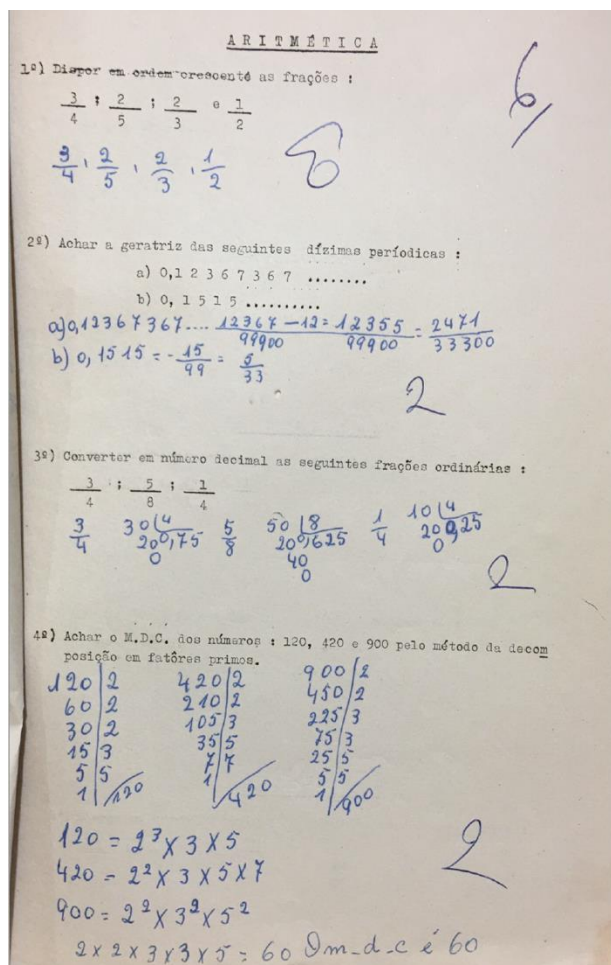 ARITMÉTICA
6
1º) Dispor em ordem crescente as frações :
3/4 ; 2/5 ; 2/3 e 1/2
3/4 , 2/5 , 2/3 , 1/2
2º) Achar a geratriz das seguintes dízimas períodicas :
a) 0,1 2 3 6 7 3 6 7 ........
b) 0, 1 5 1 5 ..........
a) 0,12367367.... 12367-12/99900 = 12355/99900 = 2471/33300
b) 0,1515 = - 15/99 = 5/33
2
3º) Converter em número decimal as seguintes frações ordinárias :
3/4 ; 5/8 ; 1/4
3/4 30 | 4 5/8 50 | 8 1/4 10 | 4
20 0,75 20 0,625 20 0,25
0 40 0
0
2
4º) Achar o M.D.C. dos números : 120, 420 e 900 pelo método da decom
posição em fatôres primos.
120 | 2 420 | 2 900 | 2
60 | 2 210 | 2 450 | 2
30 | 2 105 | 3 225 | 3
15 | 3 35 | 5 75 | 3
5 | 5 7 | 7 25 | 5
1 | 120 1 | 420 5 | 5
1 | 900
120 = 2³ X 3 X 5
420 = 2² X 3 X 5 X 7
900 = 2² X 3² X 5²
2
2 x 2 x 3 x 3 x 5 = 60 O m-d-c é 60